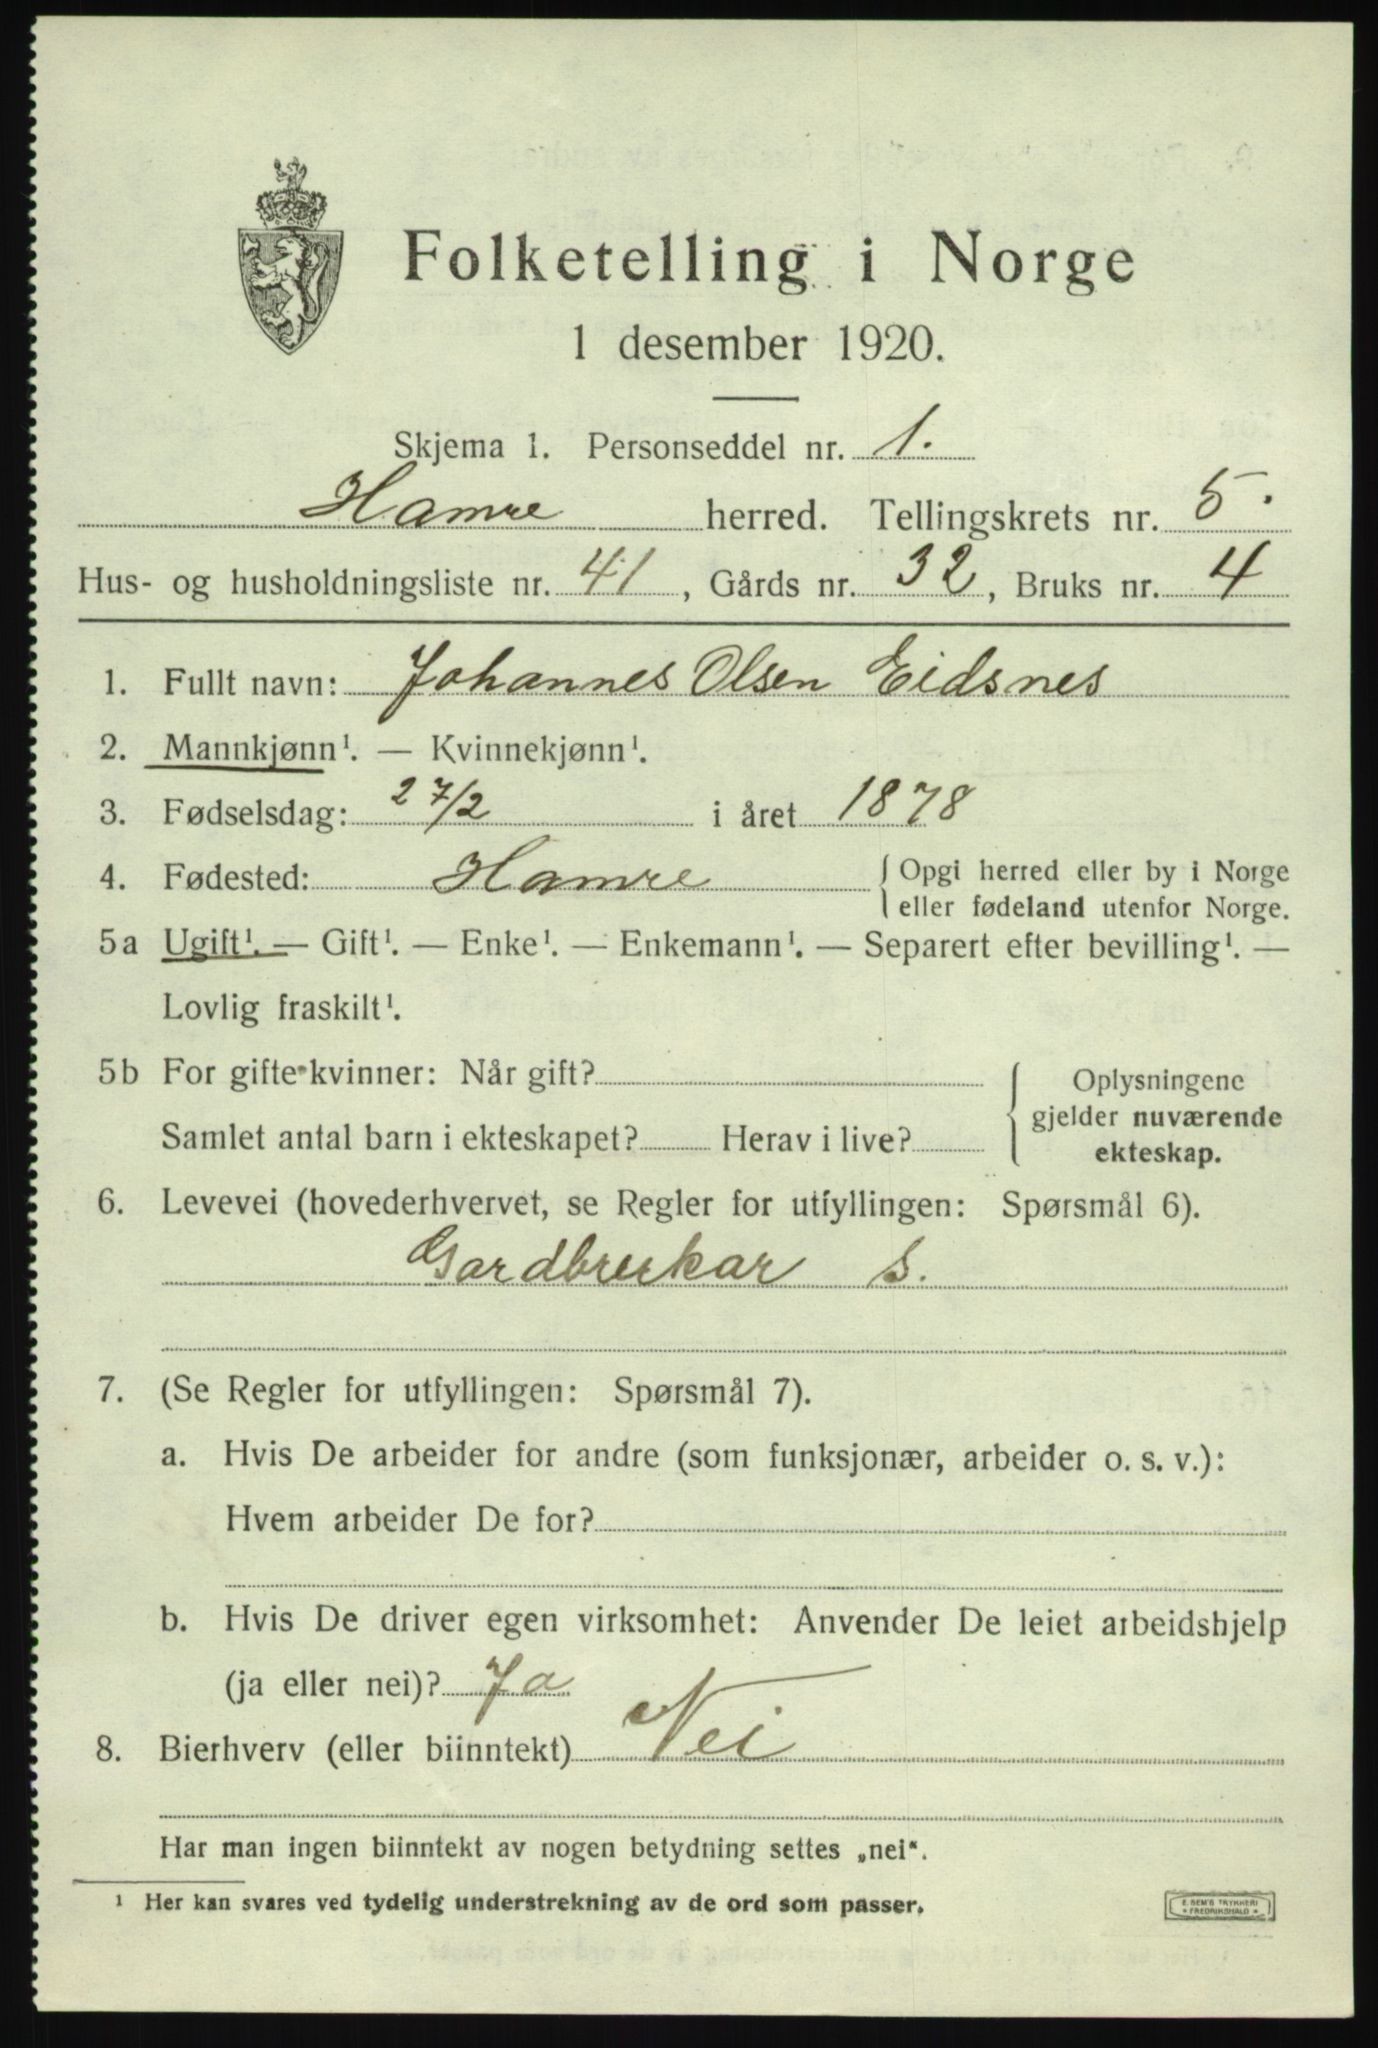 Folketelling i Norge
1 desember 1920.
Skjema 1. Personseddel nr. 1.
Hamre herred. Tellingskrets nr. 5.
Hus- og husholdningsliste nr. 41, Gårds nr. 32, Bruks nr. 4
1. Fullt navn: Johannes Olsen Eidsnes
2. Mannkjønn¹. — Kvinnekjønn¹.
3. Fødselsdag: 27/2 i året 1878
4. Fødested: Hamre { Opgi herred eller by i Norge
eller fødeland utenfor Norge.
5a Ugift¹. — Gift¹. — Enke¹. — Enkemann¹. — Separert efter bevilling¹. —
Lovlig fraskilt¹.
5b For gifte kvinner: Når gift?
Samlet antal barn i ekteskapet? Herav i live?
{ Oplysningene
gjelder nuværende
ekteskap.
6. Levevei (hovederhvervet, se Regler for utfyllingen: Spørsmål 6).
Gardbrukar s.
7. (Se Regler for utfyllingen: Spørsmål 7).
a. Hvis De arbeider for andre (som funksjonær, arbeider o. s. v.):
Hvem arbeider De for?
b. Hvis De driver egen virksomhet: Anvender De leiet arbeidshjelp
(ja eller nei)? Ja
8. Bierhverv (eller biinntekt) Nei
Har man ingen biinntekt av nogen betydning settes „nei“.
¹ Her kan svares ved tydelig understrekning av de ord som passer.
E. SEM'S TRYKKERI
* FREDRIKSHALD *